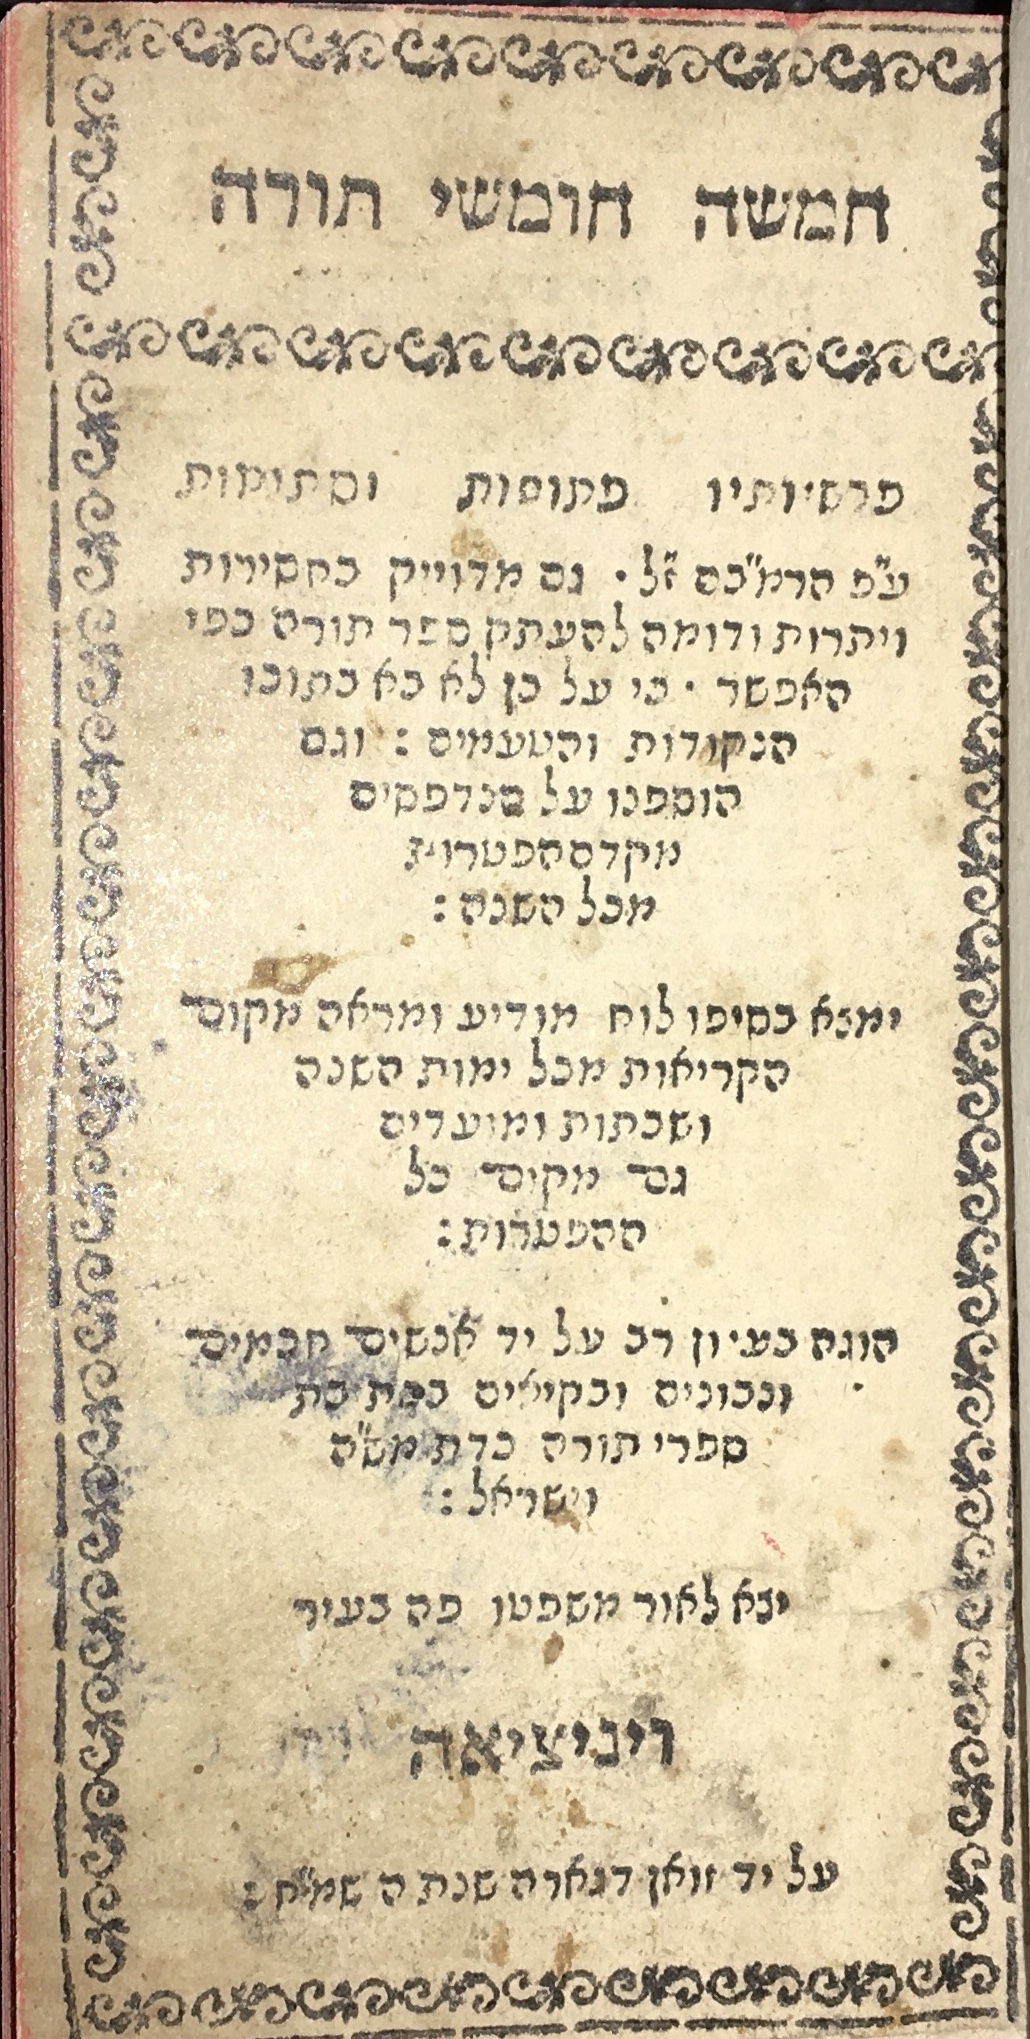 חמשה חומשי תורה
פרשיותיו פתוחות וסתומות
ע"פ הרמ"בם ז"ל · גם מדוייק בחסירות
ויתרות ודומה להעתק ספר תורה כפי
האפשר · כי על כן לא בא בתוכו
הנקודות והטעמים : וגם
הוספנו על הנדפסים
מקדם ההפטרות
מכל השנה :
ימצא בסיפו לוח מודיע ומראה מקום
הקריאות מכל ימות השנה
ושבתות ומועדים
גם מקום כל
ההפטרות :
הוגה בעיון רב על ידי אנשים חכמים
ונבונים ובקיאים בכתיבת
ספרי תורה כדת מש"ה
וישראל :
יצא לאור משפטו פה בעיר
ויניציאה
על יד זואן דגארה שנת ה שמ"ח :